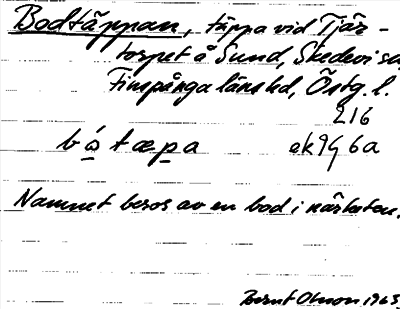 Bodtäppan, täppa vid Tjär-
torpet å Sund, Skedevi sn
Finspånga länshd, Östg. l.
216
bótæpa ek9g6a
Namnet beror av en bod i närheten.
Bernt Olsson 1965